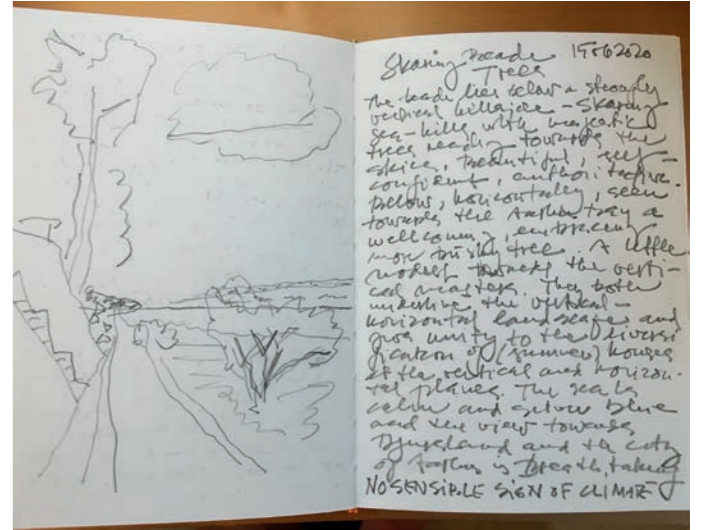 Skæring Beach 15 6 2020
Trees
The beach lies below a steeply
vertical hillside - Skæring
sea-hills with majestic
trees reaching towards the
skies, beautiful, self-
confident, authoritative.
Below, horizontally, seen
towards the Aarhus bay a
wellcoming, embracing
more bushy tree. A little
modest towards the verti-
cal masters. They both
underline the vertical -
horizontal landscape and
give unity to the diversi
fication of (summer) houses
at the vertical and horizon-
tal planes. The sea is
calm and yellow blue
and the view towards
Djursland and the city
of Aarhus is breathtaking
NO SENSIBLE SIGN OF CLIMATE